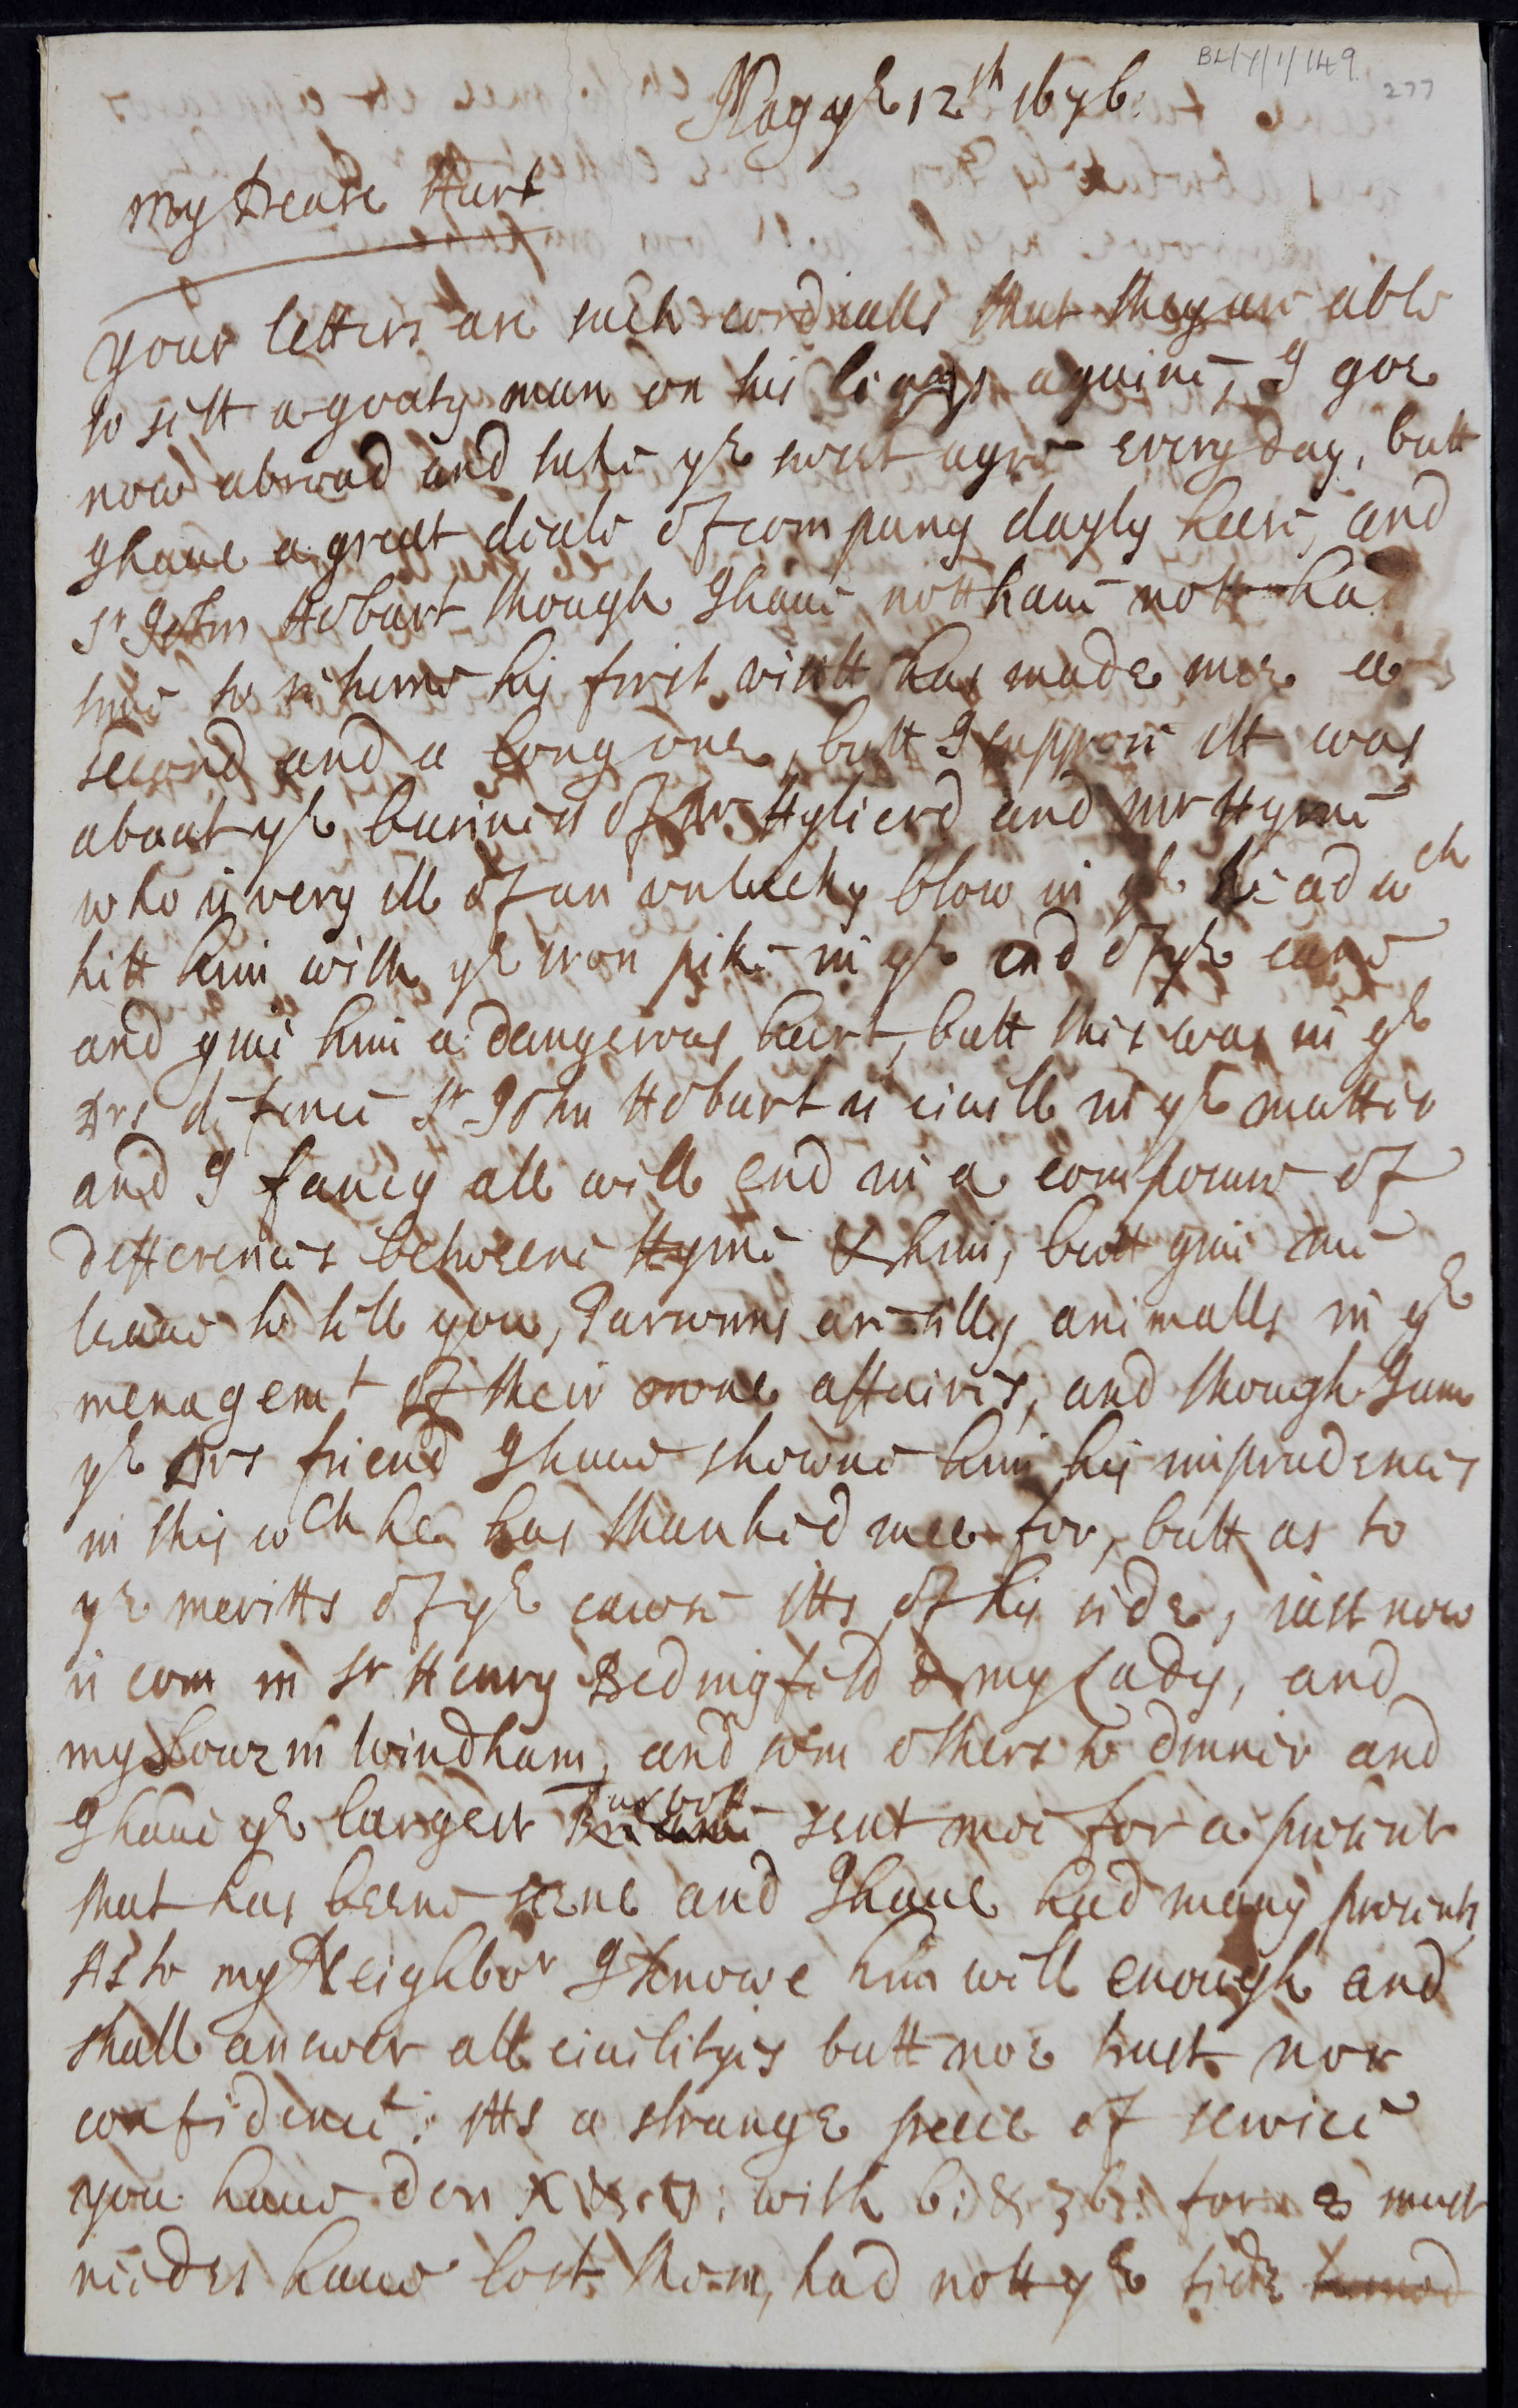 BL/Y/1/149
277
May ye 12th 1676:
my Deare Hart
your letters are such cordialls that they are able
to sett a gouty man on his leaggs againe, I goe
now abroad and take ye sweet ayre every day, butt
I have a great deale of company dayly heere, and
Sr John Hobart though I have nott have nott had
time to returne his first visitt has made mee a
second and a long one, butt I suppose itt was
about ye business of Dr Hyliard and mr Hyrne
who is very ill of an unlucky blow in ye head wch
hitt him with ye iron pike in ye end of ye cane
and give him a dangerous hurt, butt this was in ye
Drs defence Sr John Hobart is civill in ye matter
and I fancy all will end in a composure of
defferences betweene Hyrne & him, butt give mee
leave to tell you, Parsouns are silly animalls in ye
menagemt of their owne affaires, and though I am
ye Drs friend I have showne him his imprudences
in this wch he has thanked mee for, butt as to
ye meritts of ye cawse itts of his side, just now
is com in Sr Henry Bedingfeld & my Lady, and
my Couzin Windham, and som others to dinner and
I have ye largest Turbott sent mee for a present
that has beene seene and I have had many presents
As to my Neighbor I knowe him well enough and
shall answer all civilityes butt noe trust nor
confidence: itts a strange peece of service
you have don with 6: & 36: for must
needes have lost them, had nott ye tide turned